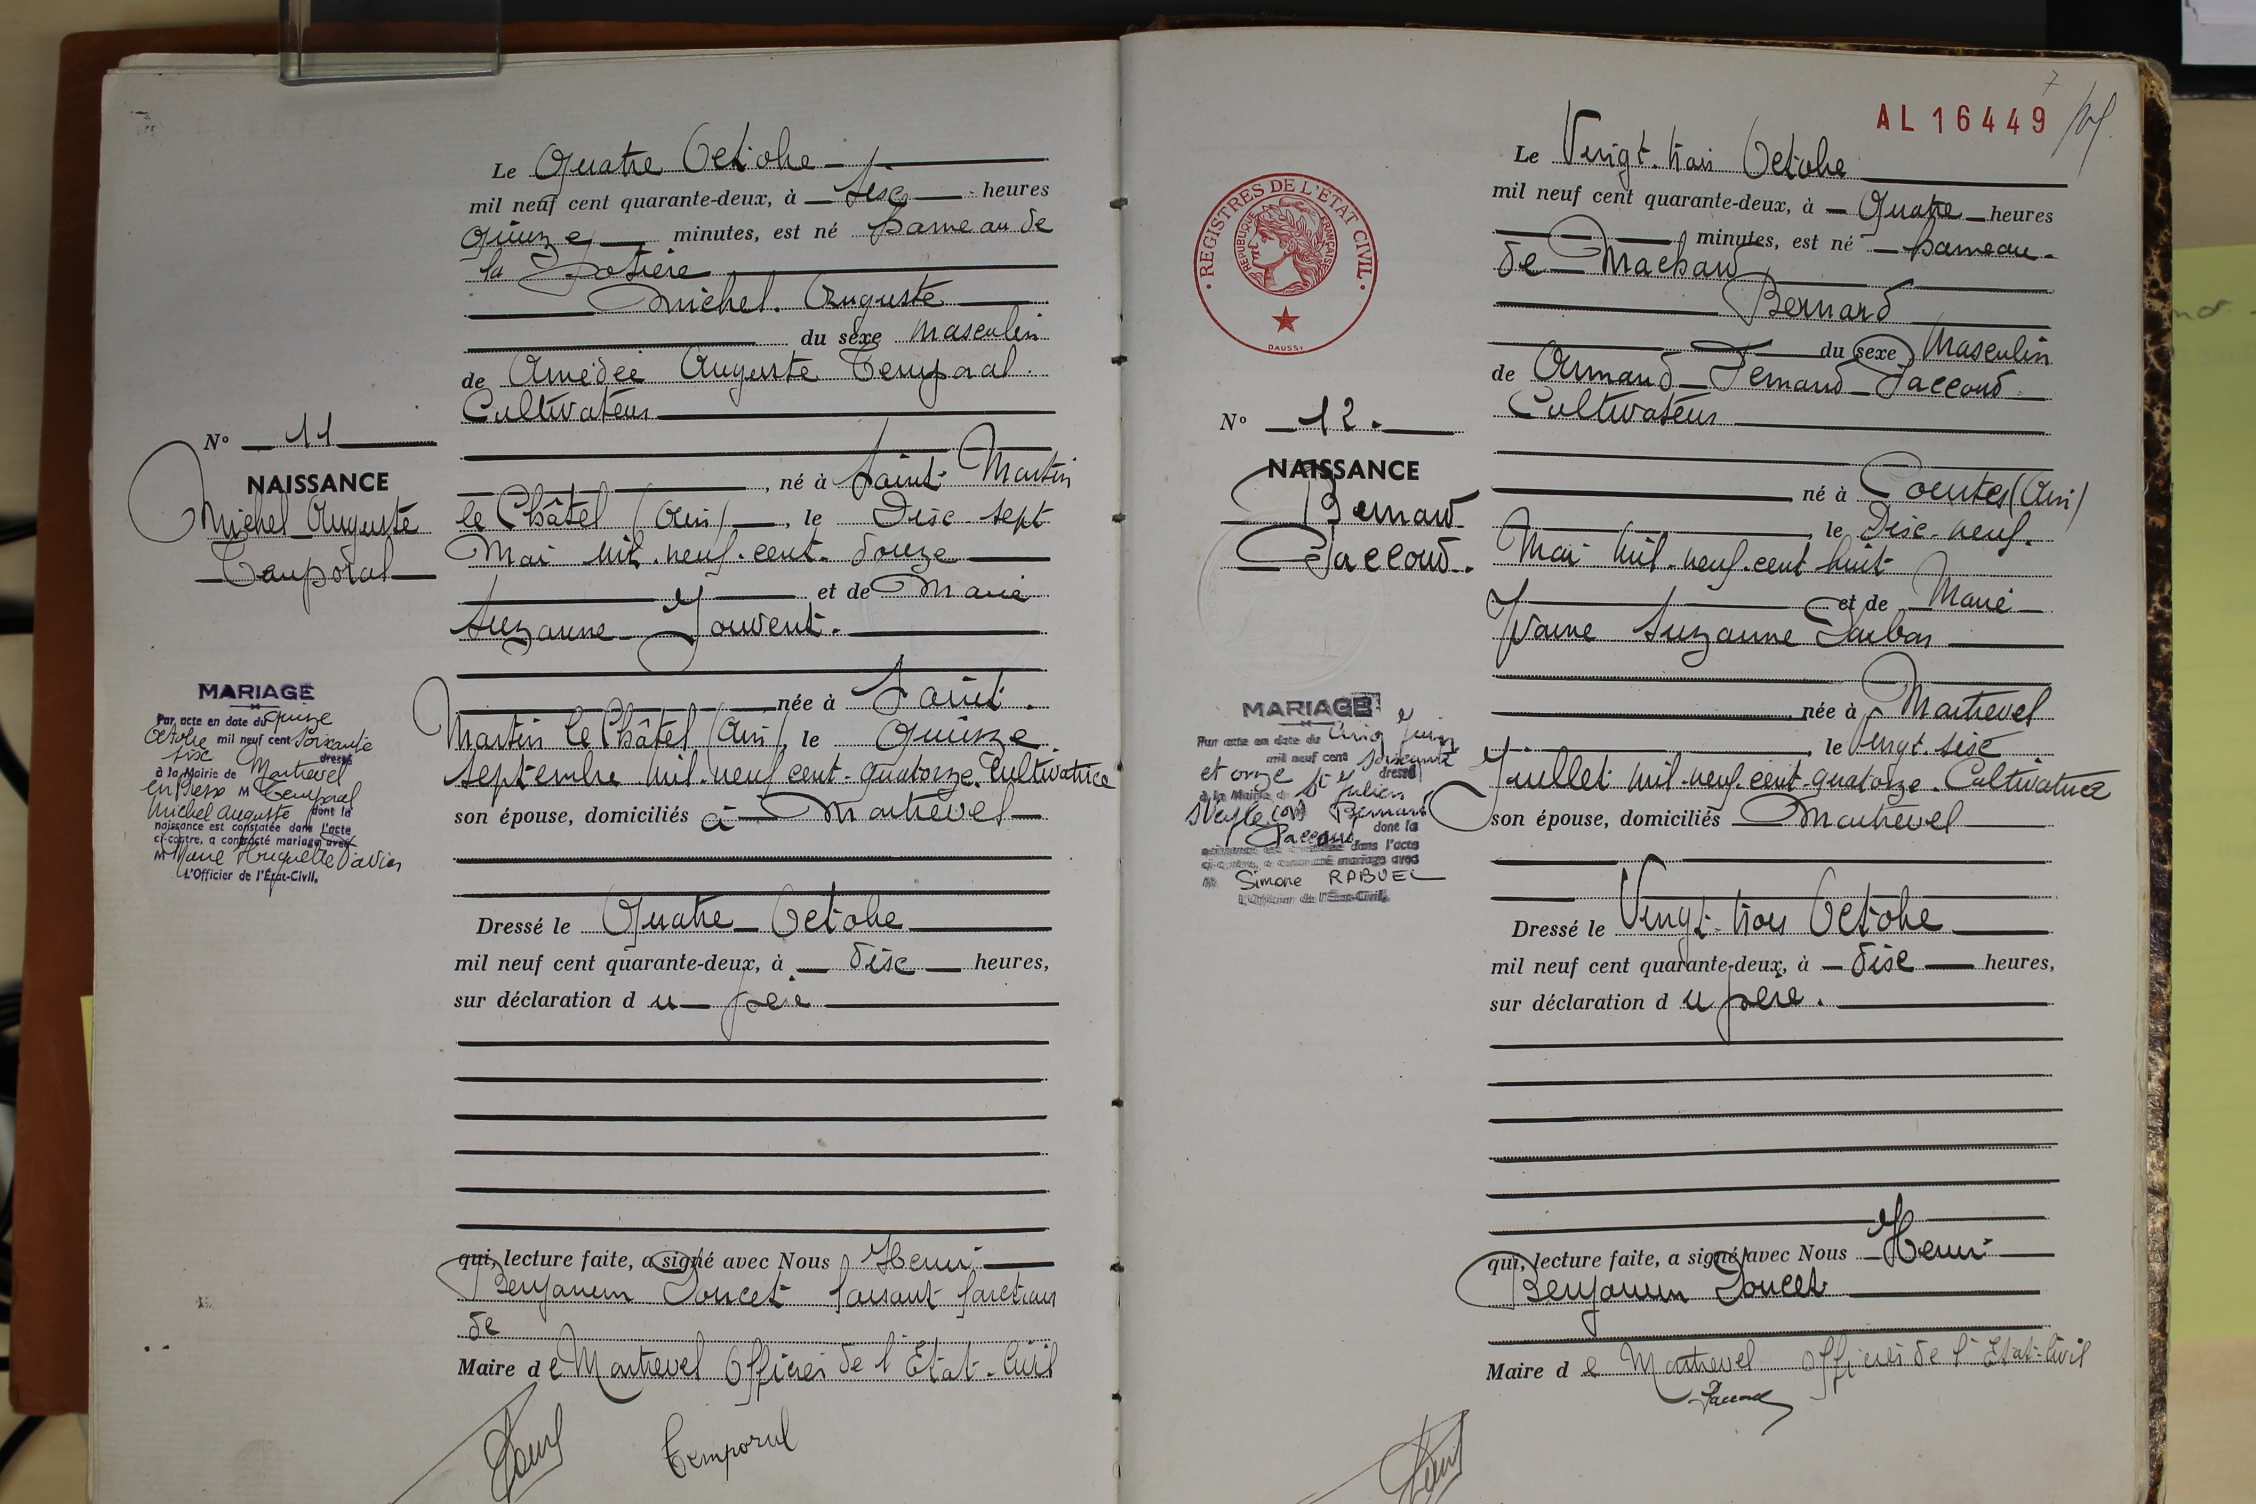 Le Quatre Octobre
mil neuf cent quarante-deux, à six heures
quinze minutes, est né hameau de
la
Michel Auguste
du sexe Masculin
de Amédée Auguste Temporal
Cultivateur
né à Saint-Martin
le Châtel (Ain), le Dix-sept
Mai mil-neuf-cent-douze
et de Marie
Suzanne Jouvent.
née à Saint
Martin le Châtel (Ain), le Quinze
septembre mil-neuf cent-quatorze. Cultivatrice
son épouse, domiciliés à Montrevel
Dressé le Quatre Octobre
mil neuf cent quarante-deux, à dix heures,
sur déclaration du père
qui, lecture faite, a signé avec Nous Henri
Benjamin Doucet faisant fonctions
de
Maire de Montrevel Officier de l'Etat-Civil
Temporal
N° 11
NAISSANCE
Michel Auguste
Temporal
MARIAGE
Par acte en date du quinze
Octobre mil neuf cent soixante
six dressé
à la Mairie de Montrevel
en Bresse M Temporal
Michel Auguste dont la
naissance est constatée dans l'acte
ci-contre, a contracté mariage avec
M Marie Huguette
L'Officier de l'État-Civil,
7
AL 16449
REGISTRES DE L'ÉTAT CIVIL
RÉPUBLIQUE FRANÇAISE
DAUSSY
Le Vingt-trois Octobre
mil neuf cent quarante-deux, à Quatre heures
minutes, est né hameau
de
Bernard
du sexe Masculin
de Armand Fernand Paccoud
Cultivateur
né à (Ain)
le Dix-neuf
Mai mil-neuf-cent huit
et de Marie
Yvonne Suzanne
née à Montrevel
le Vingt-six
Juillet mil-neuf-cent-quatorze. Cultivatrice
son épouse, domiciliés Montrevel
Dressé le Vingt-trois Octobre
mil neuf cent quarante-deux, à dix heures,
sur déclaration du père.
qui, lecture faite, a signé avec Nous Henri
Benjamin Doucet
Maire de Montrevel Officier de l'Etat-Civil
Paccoud
N° 12.
NAISSANCE
Bernard
Paccoud.
MARIAGE
Par acte en date du Cinq Juin
mil neuf cent soixante
et onze dressé
à la Mairie de St Julien
s/Veyle Bernard
Paccoud dont la
naissance est constatée dans l'acte
ci-contre, a contracté mariage avec
M Simone RABUEL
L'Officier de l'État-Civil,